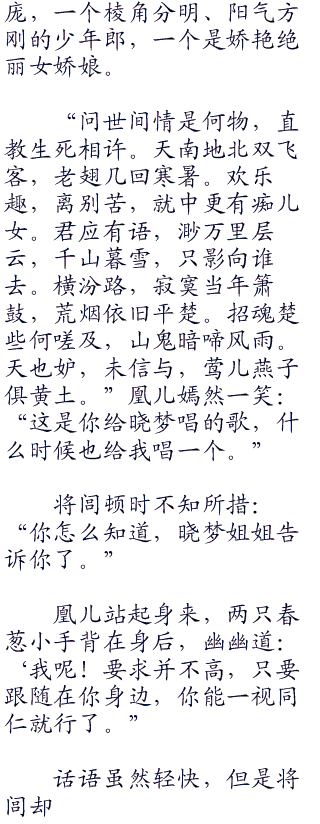 庞，一个棱角分明、阳气方
刚的少年郎，一个是娇艳绝
丽女娇娘。
“问世间情是何物，直
教生死相许。天南地北双飞
客，老翅几回寒暑。欢乐
趣，离别苦，就中更有痴儿
女。君应有语，渺万里层
云，千山暮雪，只影向谁
去。横汾路，寂寞当年箫
鼓，荒烟依旧平楚。招魂楚
些何嗟及，山鬼暗啼风雨。
天也妒，未信与，莺儿燕子
俱黄土。”凰儿嫣然一笑：
“这是你给晓梦唱的歌，什
么时候也给我唱一个。”
将闾顿时不知所措：
“你怎么知道，晓梦姐姐告
诉你了。”
凰儿站起身来，两只春
葱小手背在身后，幽幽道：
‘我呢！要求并不高，只要
跟随在你身边，你能一视同
仁就行了。”
话语虽然轻快，但是将
闾却